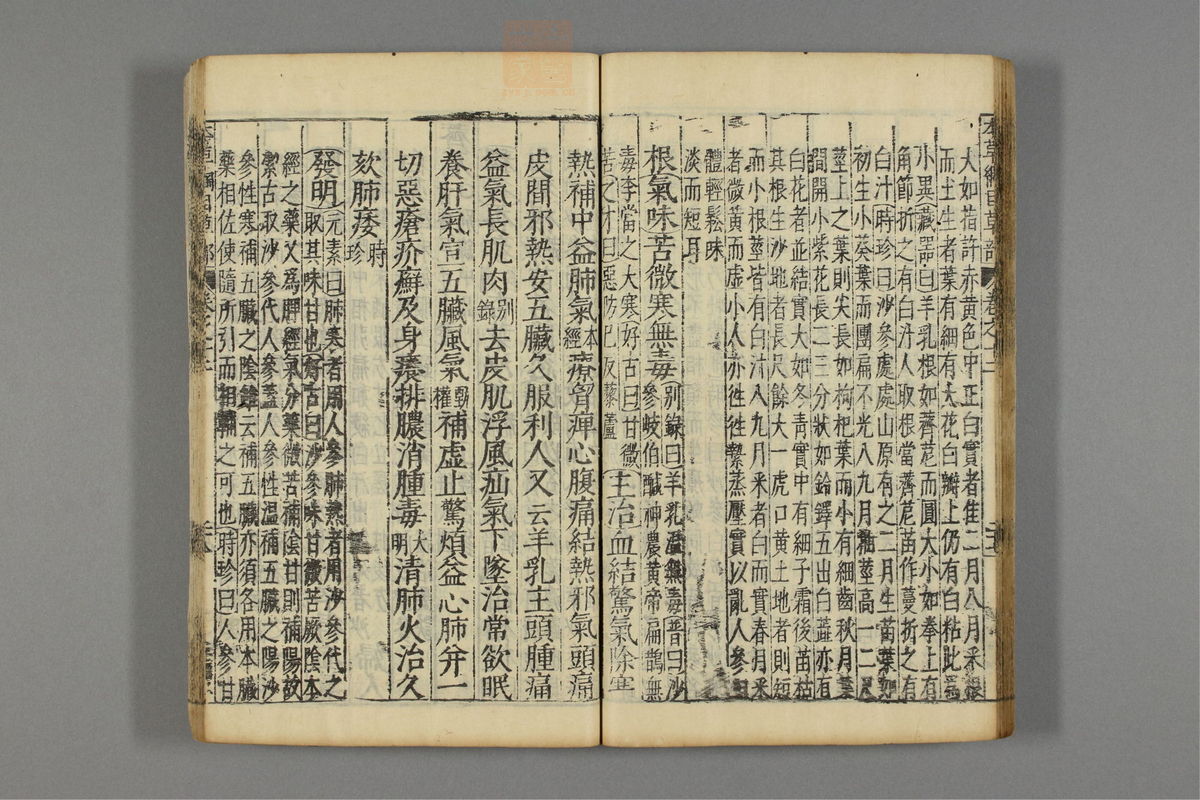 本草綱目草部 卷之十二
大如指許赤黃色中正白實者佳二月八月采根
而土生者葉有細有大花白瓣上仍有白粘此爲
小異藏器曰羊乳根如薺苨而圓大小如拳上有
角節折之有白汁人取根當薺苨苗作蔓折之有
白汁時珍曰沙參處處山原有之二月生苗葉如
初生小葵葉而團扁不光八九月抽莖高一二尺
莖上之葉則尖長如枸杞葉而小有細齒秋月葉
間開小紫花長二三分狀如鈴鐸五出白蕊亦有
白花者並結實大如冬青實中有細子霜後苗枯
其根生沙地者長尺餘大一虎口黃土地者則短
而小根莖皆有白汁八九月采者白而實春月采
者微黃而虛小人亦往往縶蒸壓實以亂人參但
體輕鬆味
淡而短耳
根氣味苦微寒無毒別錄曰羊乳溫無毒普曰沙
參岐伯鹹神農黃帝扁鵲無
毒李當之大寒好古曰甘微
苦之才曰惡防已反藜蘆主治血結驚氣除寒
熱補中益肺氣本經療胷痺心腹痛結熱邪氣頭痛
皮間邪熱安五臟久服利人又云羊乳主頭腫痛
益氣長肌肉別錄去皮肌浮風疝氣下墜治常欲眠
養肝氣宣五臟風氣甄權補虛止驚煩益心肺并一
切惡瘡疥癬及身癢排膿消腫毒大明清肺火治久
欬肺痿時珍
發明元素曰肺寒者用人參肺熱者用沙參代之
取其味甘也好古曰沙參味甘微苦厥陰本
經之藥又爲脾經氣分藥微苦補陰甘則補陽故
潔古取沙參代人參蓋人參性溫補五臟之陽沙
參性寒補五臟之陰雖云補五臟亦須各用本臟
藥相佐使隨所引而相輔之可也時珍曰人參甘
本草綱目草部 卷之十二